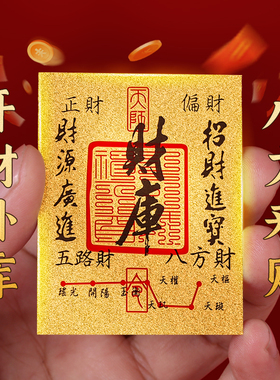 开财补库
正財
天師
偏財
財源廣進
財庫
招財進寶
五路財
八方財
天權
天樞
瑤光
開陽
玉衡
天璣
天璇
八方来财